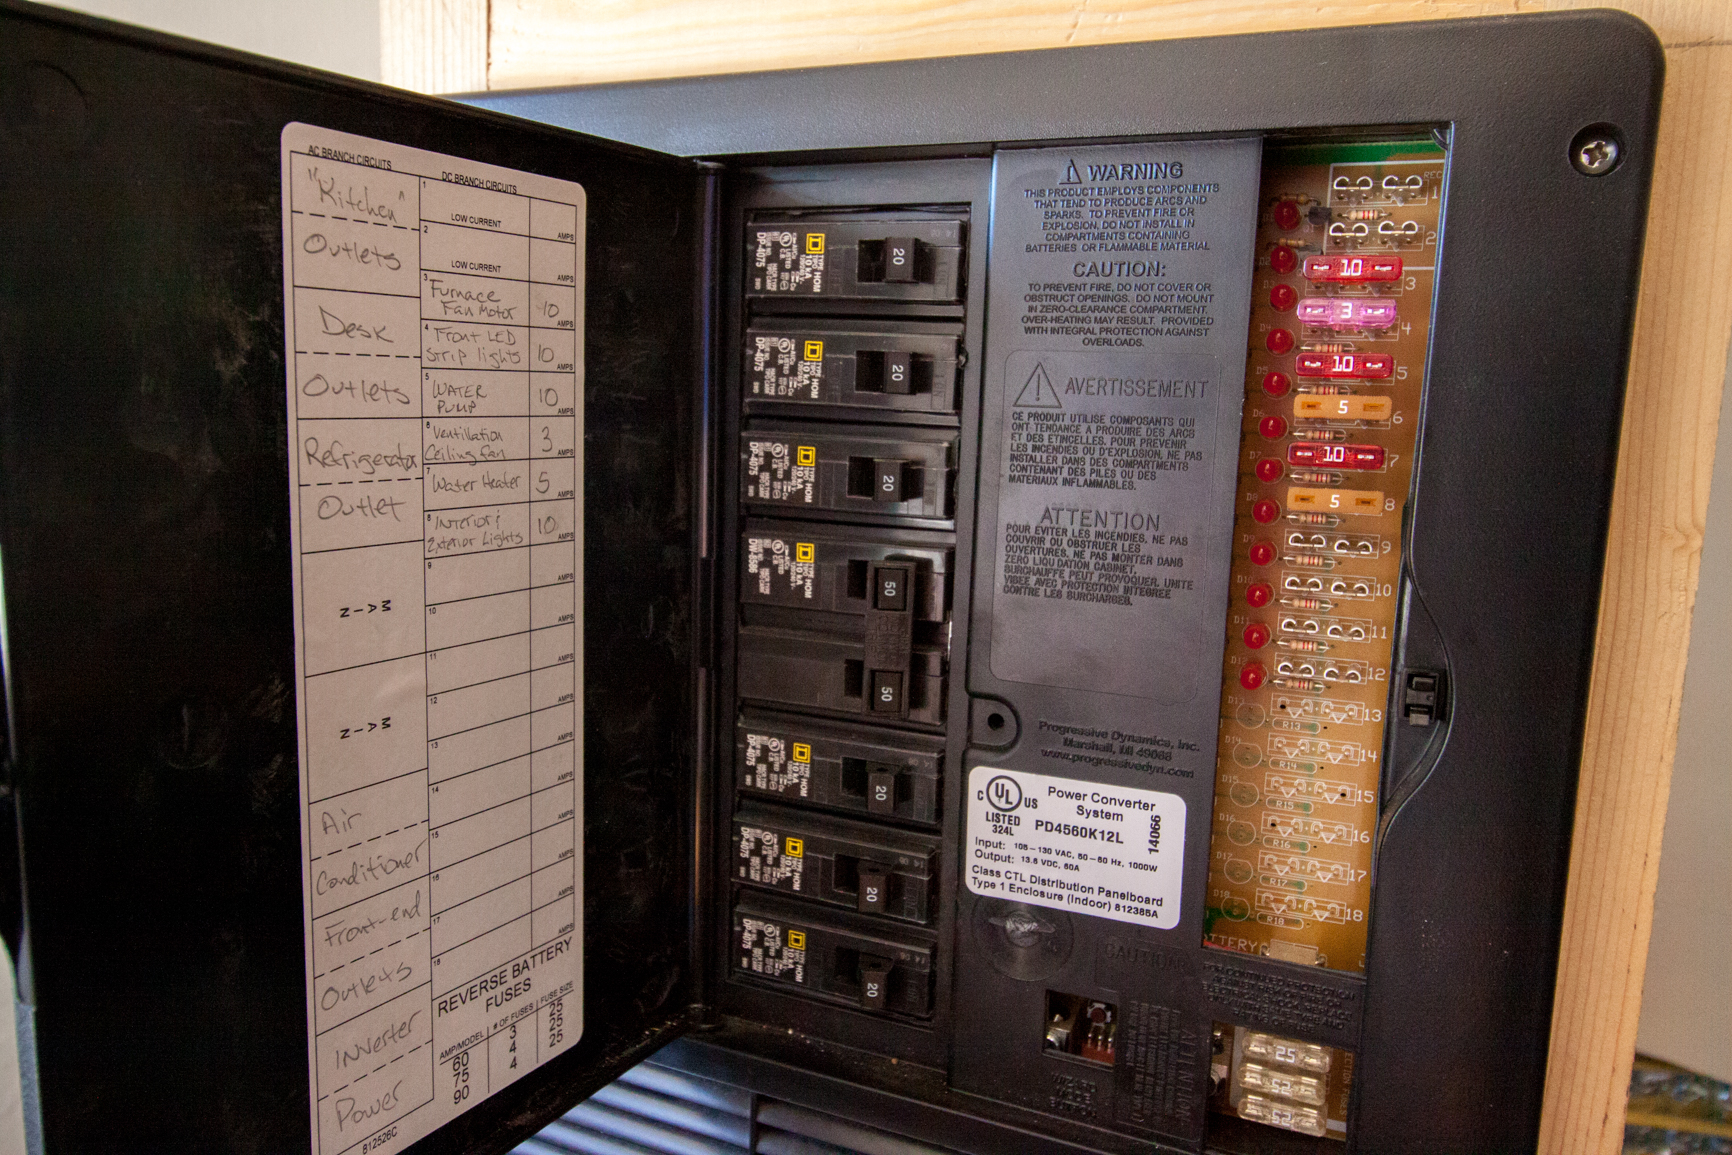 AC BRANCH CIRCUITS
"Kitchen"
Outlets
Desk
Outlets
Refrigerator
Outlet
MAIN
MAIN
Air
Conditioner
Front-end
Outlets
Inverter
Power
812526C
DC BRANCH CIRCUITS
1
LOW CURRENT
AMPS
2
LOW CURRENT
AMPS
3
Furnace
Fan Motor
10
AMPS
4
Front LED
Strip lights
10
AMPS
5
WATER
PUMP
10
AMPS
6
Ventillation
Ceiling fan
3
AMPS
7
Water Heater
5
AMPS
8
Interior &
Exterior Lights
10
AMPS
9
AMPS
10
AMPS
11
AMPS
12
AMPS
13
AMPS
14
AMPS
15
AMPS
16
AMPS
17
AMPS
18
REVERSE BATTERY
FUSES
AMP/MODEL # OF FUSES FUSE SIZE
60 3 25
75 4 25
90 4 25
DP-4075
TYPE HOM
10 kA
20
DP-4075
TYPE HOM
10 kA
20
DP-4075
TYPE HOM
10 kA
20
TYPE HOM
10 kA
50
50
DP-4075
TYPE HOM
10 kA
20
DP-4075
TYPE HOM
10 kA
20
DP-4075
TYPE HOM
10 kA
20
WARNING
THIS PRODUCT EMPLOYS COMPONENTS
THAT TEND TO PRODUCE ARCS AND
SPARKS. TO PREVENT FIRE OR
EXPLOSION, DO NOT INSTALL IN
COMPARTMENTS CONTAINING
BATTERIES OR FLAMMABLE MATERIAL
CAUTION:
TO PREVENT FIRE, DO NOT COVER OR
OBSTRUCT OPENINGS. DO NOT MOUNT
IN ZERO-CLEARANCE COMPARTMENT.
OVER-HEATING MAY RESULT. PROVIDED
WITH INTEGRAL PROTECTION AGAINST
OVERLOADS.
AVERTISSEMENT
CE PRODUIT UTILISE COMPOSANTS QUI
ONT TENDANCE A PRODUIRE DES ARCS
ET DES ETINCELLES. POUR PREVENIR
LES INCENDIES OU D'EXPLOSION, NE PAS
INSTALLER DANS DES COMPARTIMENTS
CONTENANT DES PILES OU DES
MATERIAUX INFLAMMABLES.
ATTENTION
POUR EVITER LES INCENDIES, NE PAS
COUVRIR OU OBSTRUER LES
OUVERTURES. NE PAS MONTER DANS
ZERO LIQUIDATION CABINET.
SURCHAUFFE PEUT PROVOQUER. UNITE
VIBEE AVEC PROTECTION INTEGREE
CONTRE LES SURCHARGES.
Progressive Dynamics, Inc.
Marshall, MI 49068
www.progressivedyn.com
C UL US
LISTED
324L
Power Converter
System
PD4560K12L
14066
Input: 105-130 VAC, 50-60 Hz, 1000W
Output: 13.6 VDC, 60A
Class CTL Distribution Panelboard
Type 1 Enclosure (Indoor) 812385A
CAUTION
ATTENTION
REC
1
2
10
3
3
4
10
5
5
6
10
7
5
8
9
10
11
12
R13
13
R14
14
D15
R15
15
D16
R16
16
D17
R17
17
D18
R18
18
25
25
25